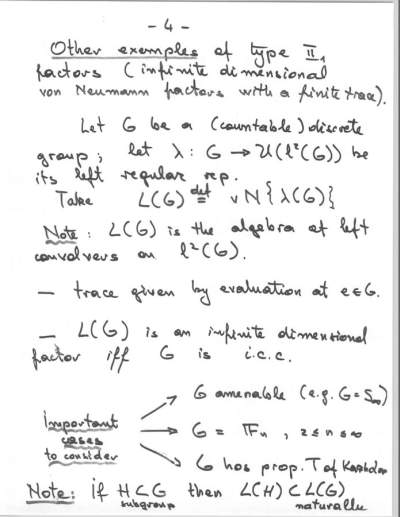 - 4 -
Other examples of type II₁
factors (infinite dimensional
von Neumann factors with a finite trace).
Let G be a (countable) discrete
group; let λ: G → U(l²(G)) be
its left regular rep.
Take L(G) def= vN{λ(G)}
Note: L(G) is the algebra of left
convolvers on l²(G).
— trace given by evaluation at e∈G.
— L(G) is an infinite dimensional
factor iff G is i.c.c.
Important
cases
to consider
G amenable (e.g. G = S∞)
G = 𝔽n, 2≤n≤∞
G has prop. T of Kazhdan
Note: if H⊂G then L(H)⊂L(G)
subgroup naturally